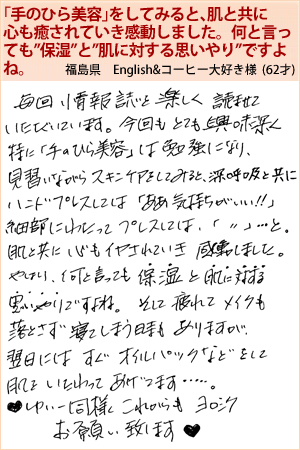 「手のひら美容」をしてみると、肌と共に
心も癒されていき感動しました。何と言っ
ても”保湿”と”肌に対する思いやり”ですよ
ね。 福島県 English&コーヒー大好き様 (62才)
毎回情報誌を楽しく読ませて
いただいています。今回もとても興味深く
特に「手のひら美容」は勉強になり、
見習いながらスキンケアをしてみると、深呼吸と共に
ハンドプレスしては「ああ気持ちがいい!!」
細部にわたってプレスしては、「 〃 」…と。
肌と共に心もイヤされていき感動しました。
やはり、何と言っても保湿と肌に対する
思いやりですよね。そして疲れてメイクも
落とさず寝てしまう日もありますが、
翌日にはすぐオイルパックなどをして
肌をいたわってあげてます……。
♥ 同様これからもヨロシク
お願い致します♥